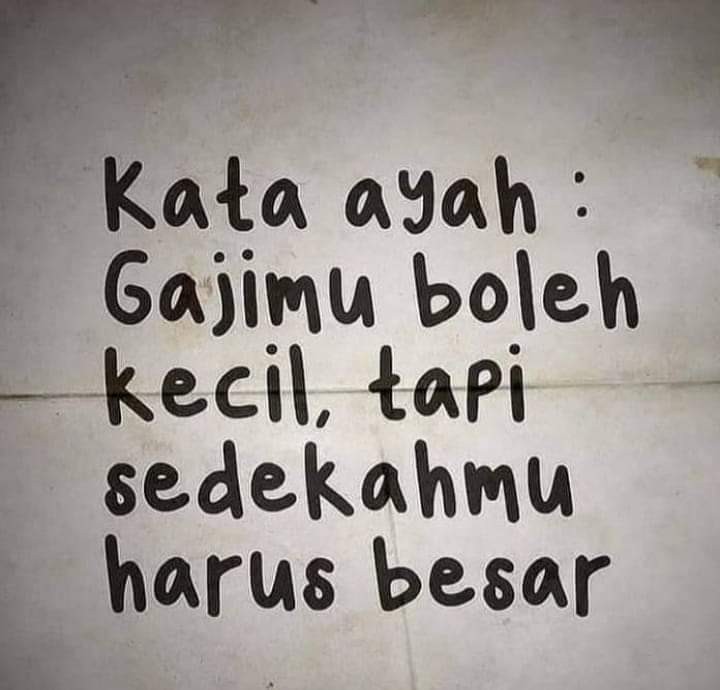 Kata ayah :
Gajimu boleh
kecil, tapi
sedekahmu
harus besar